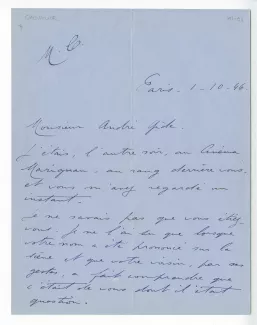 M. C.
Paris. 1-10-46
Monsieur André Gide.
J'étais, l'autre soir, au Cinéma
Marignan au rang derrière vous
et vous m'avez regardé un
instant.
Je ne savais pas que vous étiez
vous. Je ne l'ai su que lorsque
votre nom a été prononcé sur la
scène et que votre voisin, par ses
gestes, a fait comprendre que
c'était de vous dont il était
question.